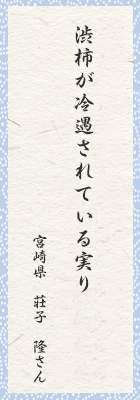 渋柿が冷遇されている実り
宮崎県　荘子　隆さん